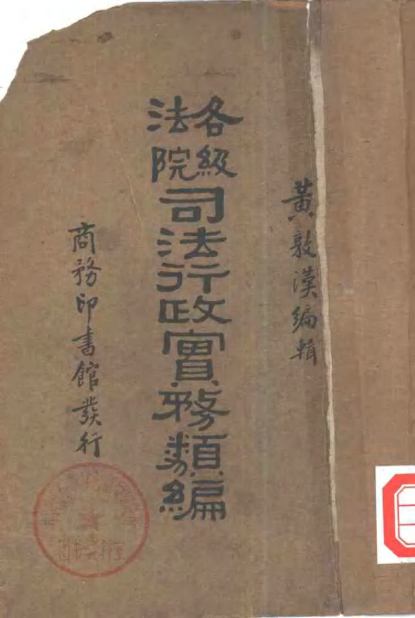 黃敦漢編輯
各級法院司法行政實務類編
商務印書館發行